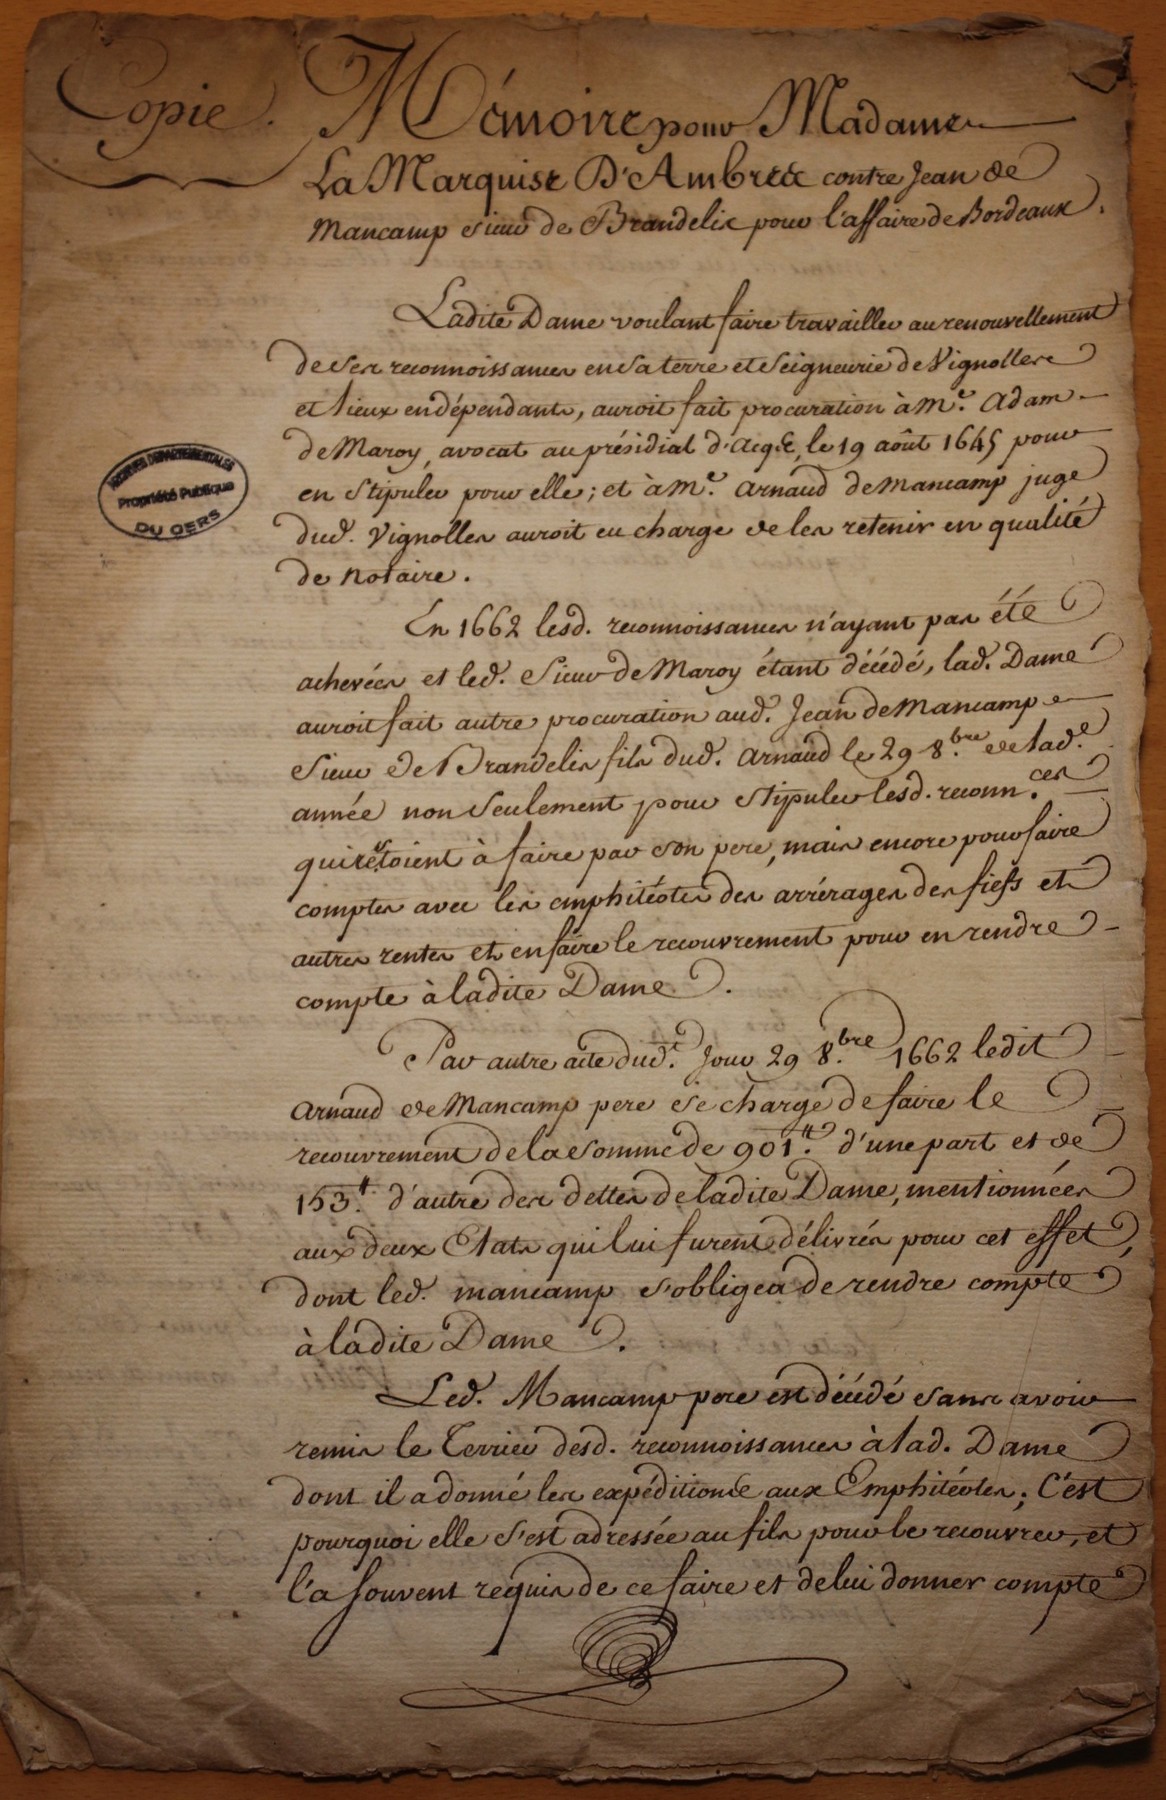 Copie.
Mémoire pour Madame
La Marquise D'Ambres contre Jean de
Mancamp sieur de Brandelis pour l'affaire de Bordeaux.
Ladite Dame voulant faire travailler au renouvellement
de ses reconnoissances en sa terre et seigneurie de Vignolles
et lieux en dépendants, auroit fait procuration à M.e Adam
de Maroy, avocat au présidial d'Acqs, le 19 août 1645 pour
en stipuler pour elle; et à M.e Arnaud de Mancamp juge
dud. Vignolles auroit eu charge de les retenir en qualité
de Notaire.
En 1662 lesd. reconnoissances n'ayant pas été
achevées et led. Sieur de Maroy étant décédé, lad. Dame
auroit fait autre procuration aud. Jean de Mancamp
sieur de Brandelis fils dud. Arnaud le 29 8.bre de lad.e
année non seulement pour stipuler lesd. reconn.ces
qui restoient à faire par son pere, mais encore pour faire
comptes avec les emphitéotes des arrérages des fiefs et
autres rentes et en faire le recouvrement pour en rendre
compte à ladite Dame.
Par autre acte dud.t Jour 29 8.bre 1662 ledit
Arnaud de Mancamp pere se charge de faire le
recouvrement de la somme de 901.tt d'une part et de
153.tt d'autre des dettes de ladite Dame, mentionnées
aux deux Etats qui lui furent délivrés pour cet effet,
dont led. mancamp s'obligea de rendre compte
à ladite Dame.
Led. Mancamp pere est décédé sans avoir
remis le Terrier desd. reconnoissances à lad. Dame
dont il a donné les expéditions aux Emphitéotes; C'est
pourquoi elle s'est adressée au fils pour le recouvrer, et
l'a souvent requis de ce faire et de lui donner compte
ARCHIVES DEPARTEMENTALES
Propriété Publique
DU GERS